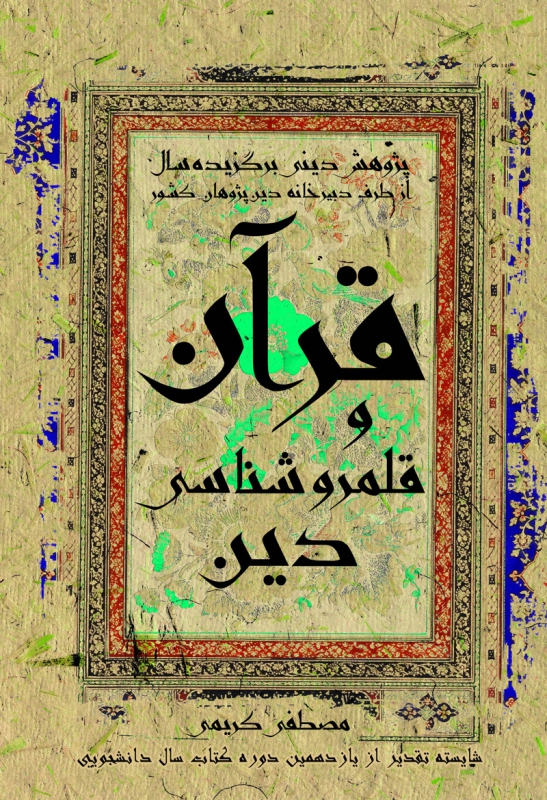 پژوهش دینی برگزیده سال
از طرف دبیرخانه دین‌پژوهان کشور
قرآن
و
قلمرو شناسی
دین
مصطفی کریمی
شایسته تقدیر از یازدهمین دوره کتاب سال دانشجویی